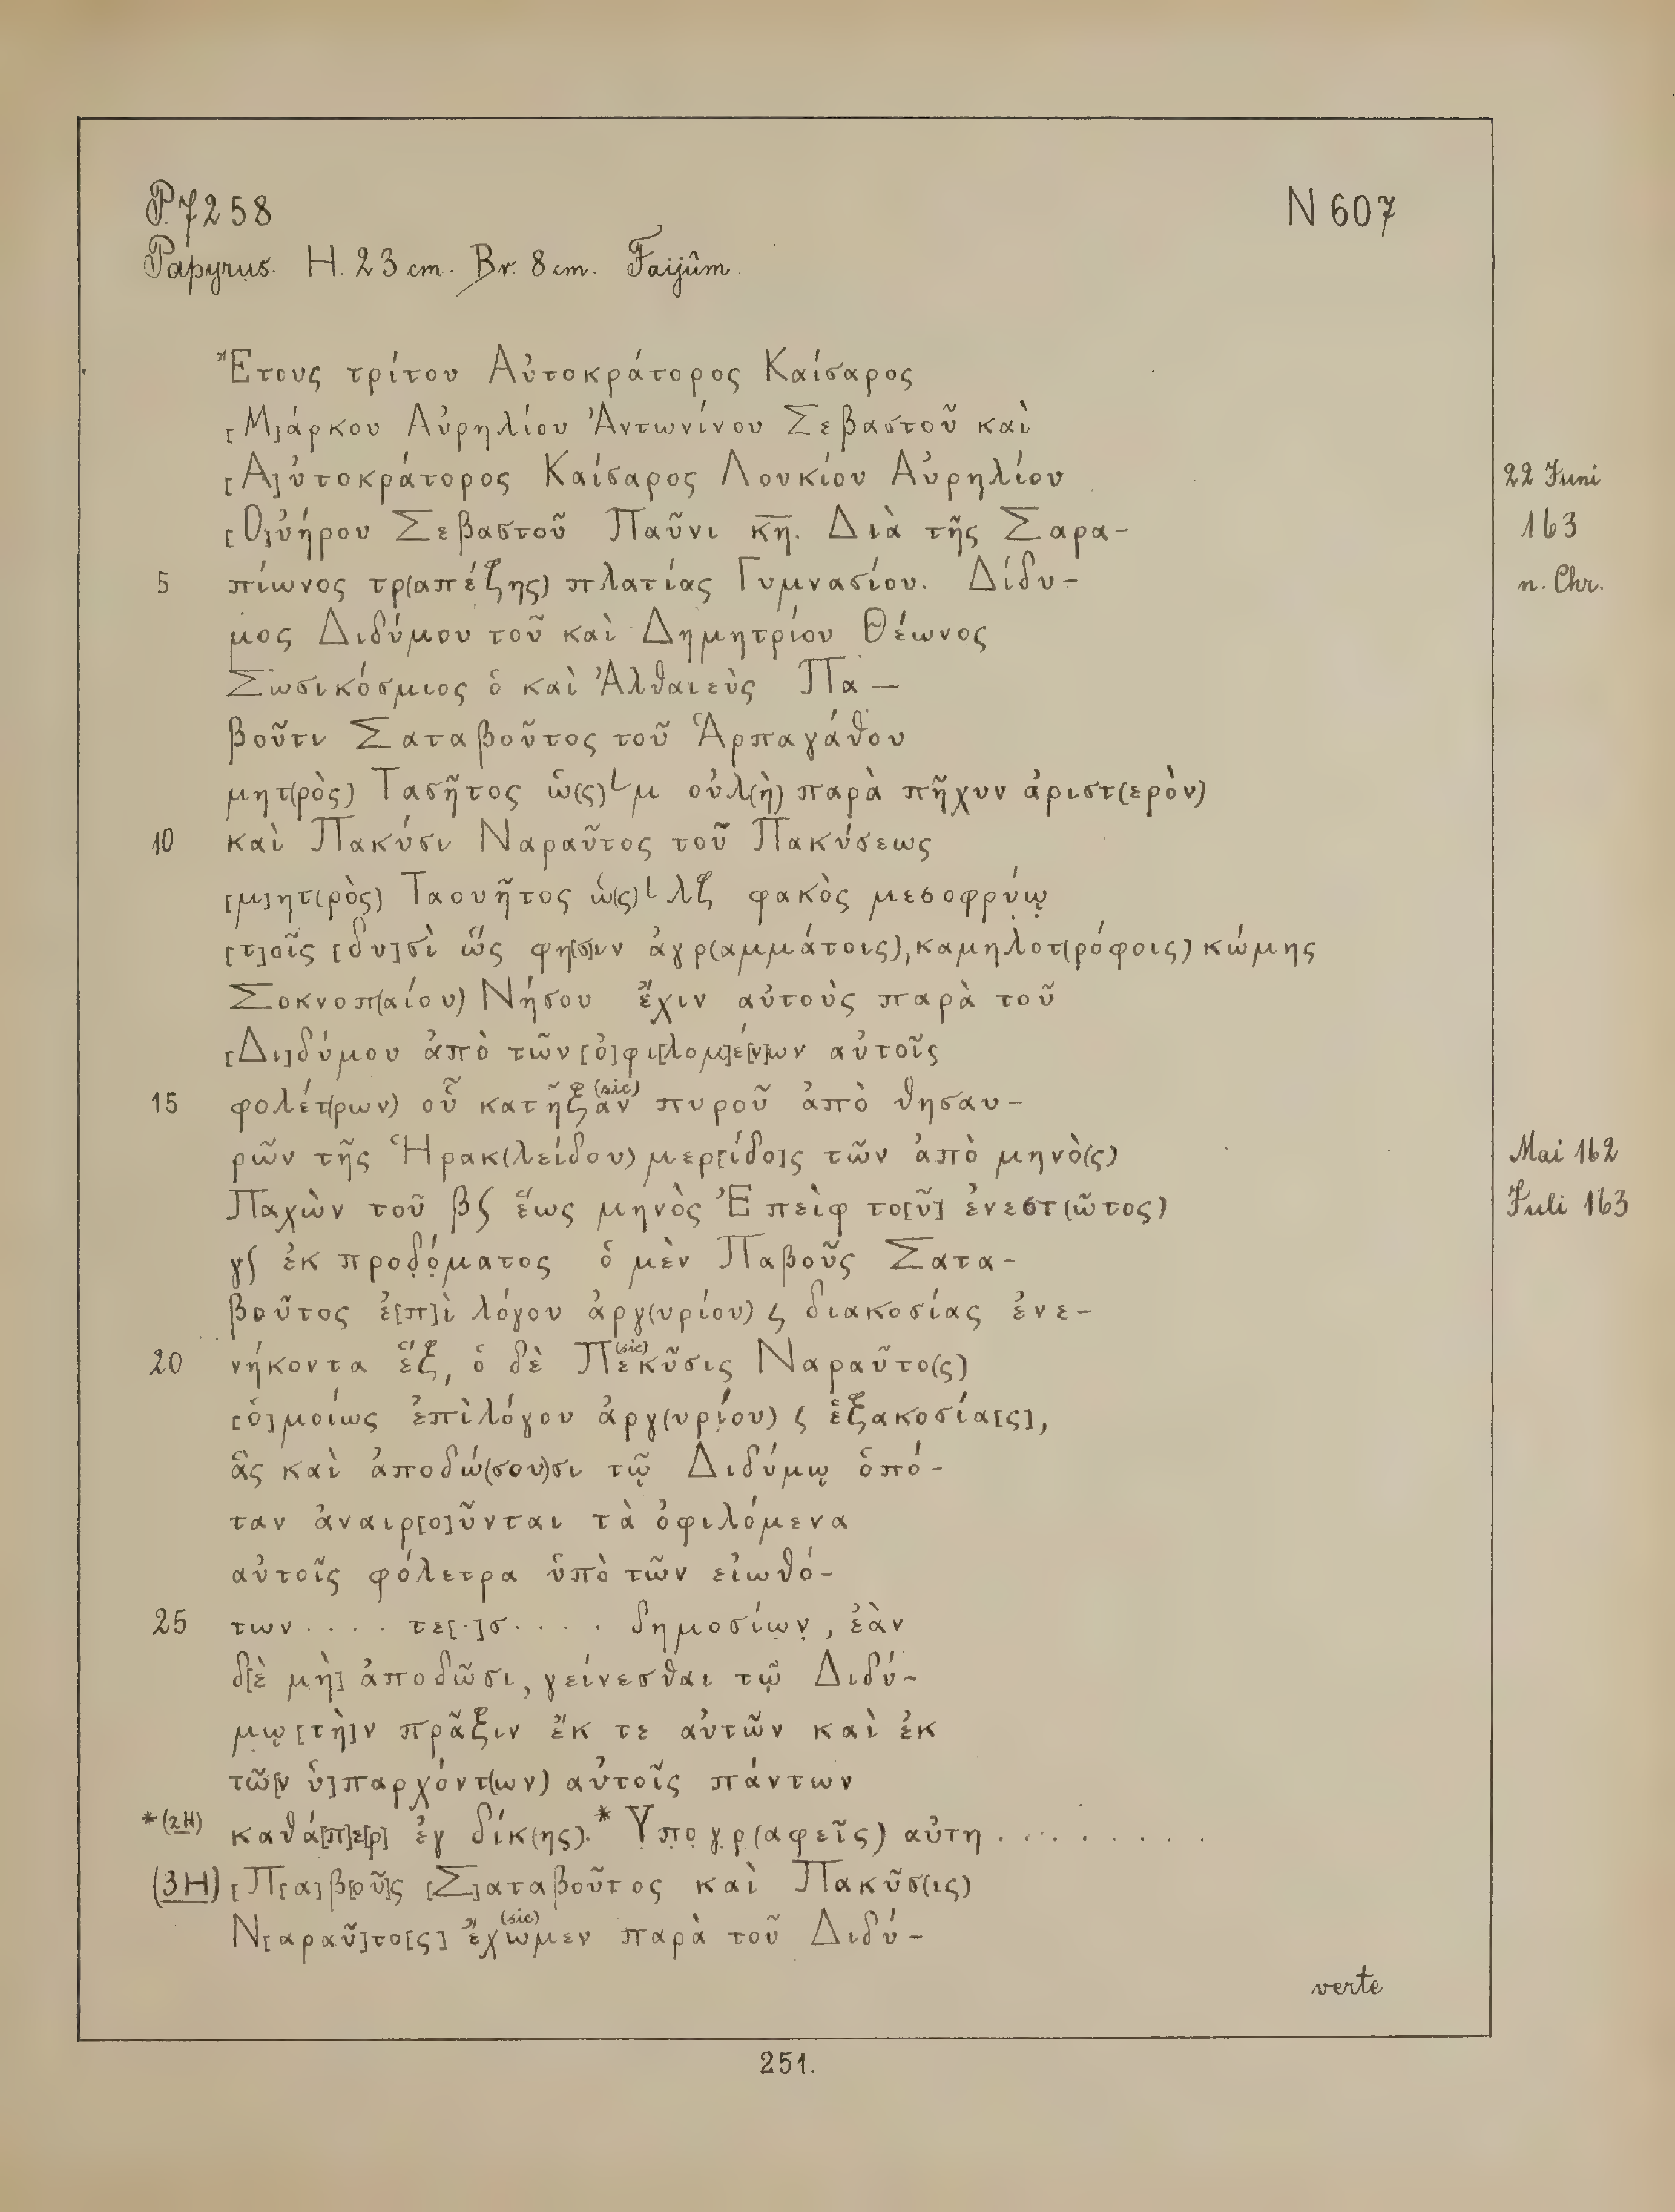 P. 7258
N 607
Papyrus. H. 23 cm. Br. 8 cm. Faijûm.
Ἔτους τρίτου Αὐτοκράτορος Καίσαρος
[Μ]άρκου Αὐρηλίου Ἀντωνίνου Σεβαστοῦ καὶ
[Α]ὐτοκράτορος Καίσαρος Λουκίου Αὐρηλίου 22 Juni
[Ο]ὐήρου Σεβαστοῦ Παῦνι κ̅η̅. Διὰ τῆς Σαρα- 163
5 πίωνος τρ(απέζης) πλατίας Γυμνασίου. Δίδυ- n. Chr.
μος Διδύμου τοῦ καὶ Δημητρίου Θέωνος
Σωσικόσμιος ὁ καὶ Ἀλθαιεὺς Πα-
βοῦτι Σαταβοῦτος τοῦ Ἁρπαγάθου
μητ(ρὸς) Τασῆτος ὡ(ς) └ μ οὐλ(ὴ) παρὰ πῆχυν ἀριστ(ερὸν)
10 καὶ Πακύσι Ναραῦτος τοῦ Πακύσεως
[μ]ητ(ρὸς) Ταουῆτος ὡ(ς) └ λζ φακὸς μεσοφρύ̣ῳ̣
[τ]οῖς [δυ]σὶ ὥς φη[σ]ιν ἀγρ(αμμάτοις), καμηλοτ(ρόφοις) κώμης
Σοκνοπ(αίου) Νήσου ἔχιν αὐτοὺς παρὰ τοῦ
[Δι]δύμου ἀπὸ τῶν [ὀ]φι[λομ]έ[ν]ων αὐτοῖς
15 φολέτ(ρων) οὗ κατῆξαν (sic) πυροῦ ἀπὸ θησαυ-
ρῶν τῆς Ἡρακ(λείδου) μερ[ίδο]ς τῶν ἀπὸ μηνὸ(ς) Mai 162
Παχὼν τοῦ βζ ἕως μηνὸς Ἐπεὶφ το[ῦ] ἐνεστ(ῶτος) Juli 163
γ∫ ἐκ προδ̣ό̣ματος ὁ μὲν Παβοῦς Σατα-
βοῦτος ἐ[π]ὶ λόγου ἀργ(υρίου) ς διακοσίας ἐνε-
20 νήκοντα ἕξ, ὁ δὲ Πεκῦσις (sic) Ναραῦτο(ς)
[ὁ]μοίως ἐπὶ λόγου ἀργ(υρί̣ου) ς ἑξακοσία[ς],
ἃς καὶ ἀποδώ(σου)σι τῷ Διδύμῳ ὁπό-
ταν ἀναιρ[ο]ῦνται τὰ ὀφιλόμενα
αὐτοῖς φόλετρα ὑπὸ τῶν εἰωθό-
25 των . . . . τε[.]σ . . . . δημοσίω̣ν̣, ἐὰν
δ[ὲ μὴ] ἀποδῶσι, γείνεσθαι τῷ Διδύ-
μῳ [τὴ]ν πρᾶξιν ἔκ τε αὐτῶν καὶ ἐκ
τῶ[ν ὑ]παρχόντ(ων) αὐτοῖς πάντων
*(2H) καθά[π]ε[ρ] ἐγ δίκ(ης). * Υπ̣ο̣γ̣ρ̣(αφεῖς) αὐτη . . . . . . . . .
(3H) [Π[α]β[οῦ]ς [Σ]αταβοῦτος καὶ Πακῦσ(ις)
Ν[αραῦ]το[ς] ἔχωμεν (sic) παρὰ τοῦ Διδύ-
verte
251.